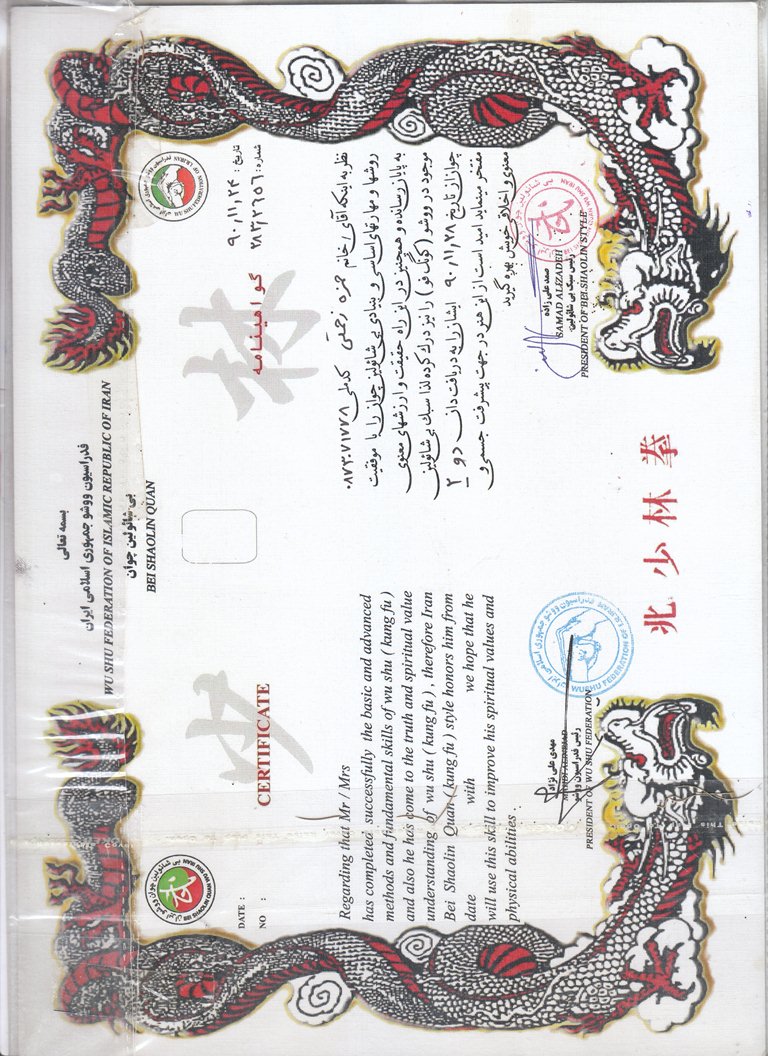 بسمه تعالی
فدراسیون ووشو جمهوری اسلامی ایران
WU SHU FEDERATION OF ISLAMIC REPUBLIC OF IRAN
بی شائولین جوان
BEI SHAOLIN QUAN
BEI SHAOLIN QUAN
DATE :
NO :
CERTIFICATE
Regarding that Mr / Mrs
has completed successfully the basic and advanced
methods and fundamental skills of wu shu ( kung fu )
and also he has come to the truth and spiritual value
understanding of wu shu ( kung fu ) , therefore Iran
Bei Shaolin Quan ( kung fu ) style honors him from
date with we hope that he
will use this skill to improve his spiritual values and
physical abilities
تاریخ : ۹۰,۱۱,۲۴
شماره : ۲۸۳,۲۶۵۶
گواهینامه
少林
نظر به اینکه آقای / خانم حمزه زحمتی کدملی ۰۸۷۳۰۷۱۷۷۸
روشها و مهارتهای اساسی و بنیادی بی شائولین جوان را با موفقیت
به پایان رسانده و همچنین در این راه حقیقت و ارزشهای معنوی
موجود در ووشو ( کونگ فو ) را نیز درک کرده لذا سبک بی شائولین
جوان از تاریخ ۹۰,۱۱,۲۸ ایشان را به دریافت دان دو ۲
مفتخر مینماید امید است از این هنر در جهت پیشرفت جسمی و
معنوی و اخلاق خویش بهره گیرید
مهدی علی نژاد
رئیس فدراسیون ووشو
PRESIDENT OF WU SHU FEDERATION
WUSHU FEDERATION OF I.R.IRAN
صمد علی زاده
رئیس سبک بی شائولین
SAMAD ALEZADEH
PRESIDENT OF BEI SHAOLIN STYLE
北少林拳